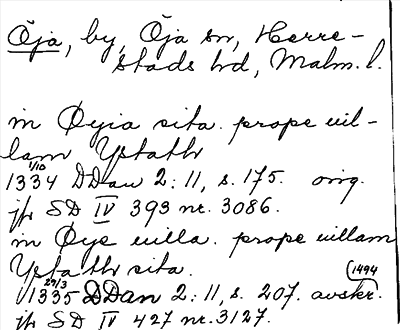 Öja, by, Öja sn, Herre-
stads hd, Malm. l.
in Øyia sita. prope uil-
lam Ystathr
1/10
1334 DDan 2:11, s. 175. orig.
jfr SD IV 393 nr. 3086.
in Øye uilla. prope uillam
Ystathr sita.
(1494
29/3
1335 DDan 2:11, s. 207. avskr.
jfr SD IV 427 nr. 3127.